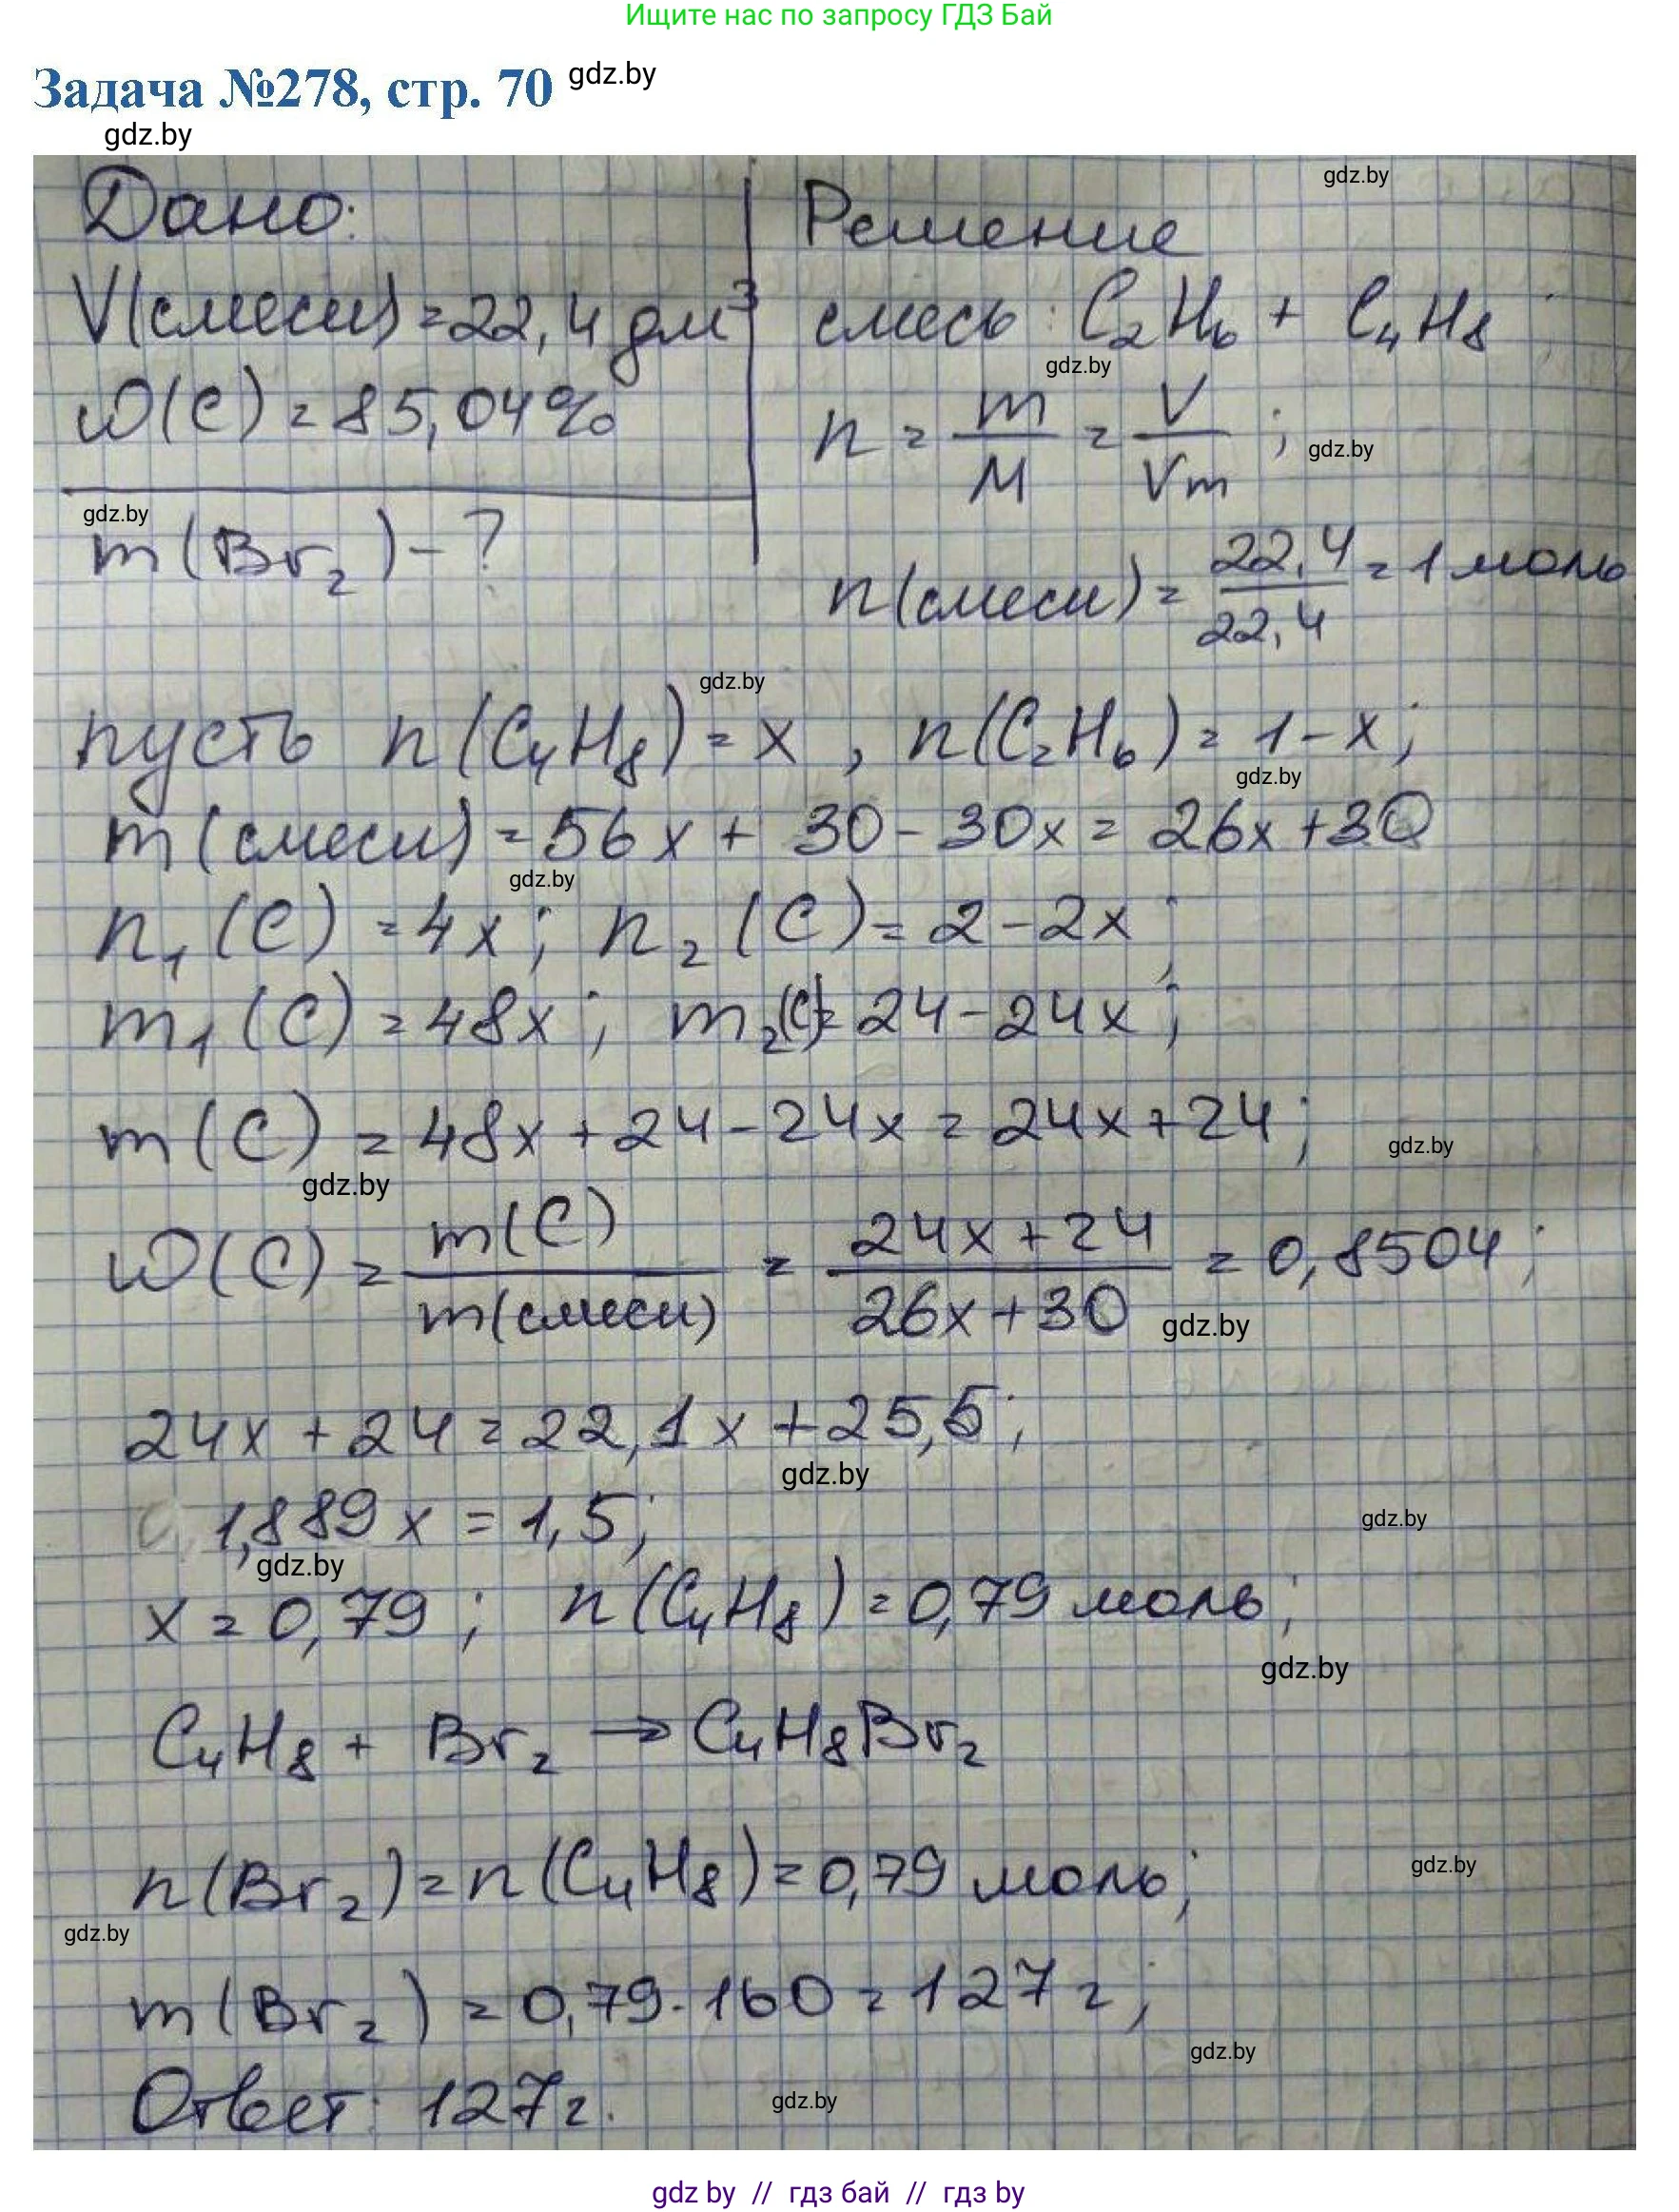 Ищите нас по запросу ГДЗ Бай
Задача №278, стр. 70 gdz.by
gdz.by
gdz.by
Дано:
V(смеси) = 22,4 дм³
ω(C) = 85,04%
gdz.by
m(Br₂) - ?
Решение
смесь: C₂H₆ + C₄H₈;
gdz.by
n = m/M = V/Vm; gdz.by
n(смеси) = 22,4/22,4 = 1 моль
gdz.by
пусть n(C₄H₈) = x, n(C₂H₆) = 1 - x;
gdz.by
m(смеси) = 56x + 30 - 30x = 26x + 30
gdz.by
n₁(C) = 4x; n₂(C) = 2 - 2x;
m₁(C) = 48x; m₂(C) = 24 - 24x;
m(C) = 48x + 24 - 24x = 24x + 24;
gdz.by
gdz.by
ω(C) = m(C)/m(смеси) = (24x + 24)/(26x + 30) = 0,8504;
gdz.by
24x + 24 = 22,1x + 25,5;
gdz.by
1,889x = 1,5;
gdz.by
gdz.by
x = 0,79; n(C₄H₈) = 0,79 моль;
gdz.by
C₄H₈ + Br₂ → C₄H₈Br₂
n(Br₂) = n(C₄H₈) = 0,79 моль;
gdz.by
gdz.by
m(Br₂) = 0,79·160 = 127 г;
gdz.by
Ответ: 127 г.
gdz.by
gdz by // гдз бай // гдз by